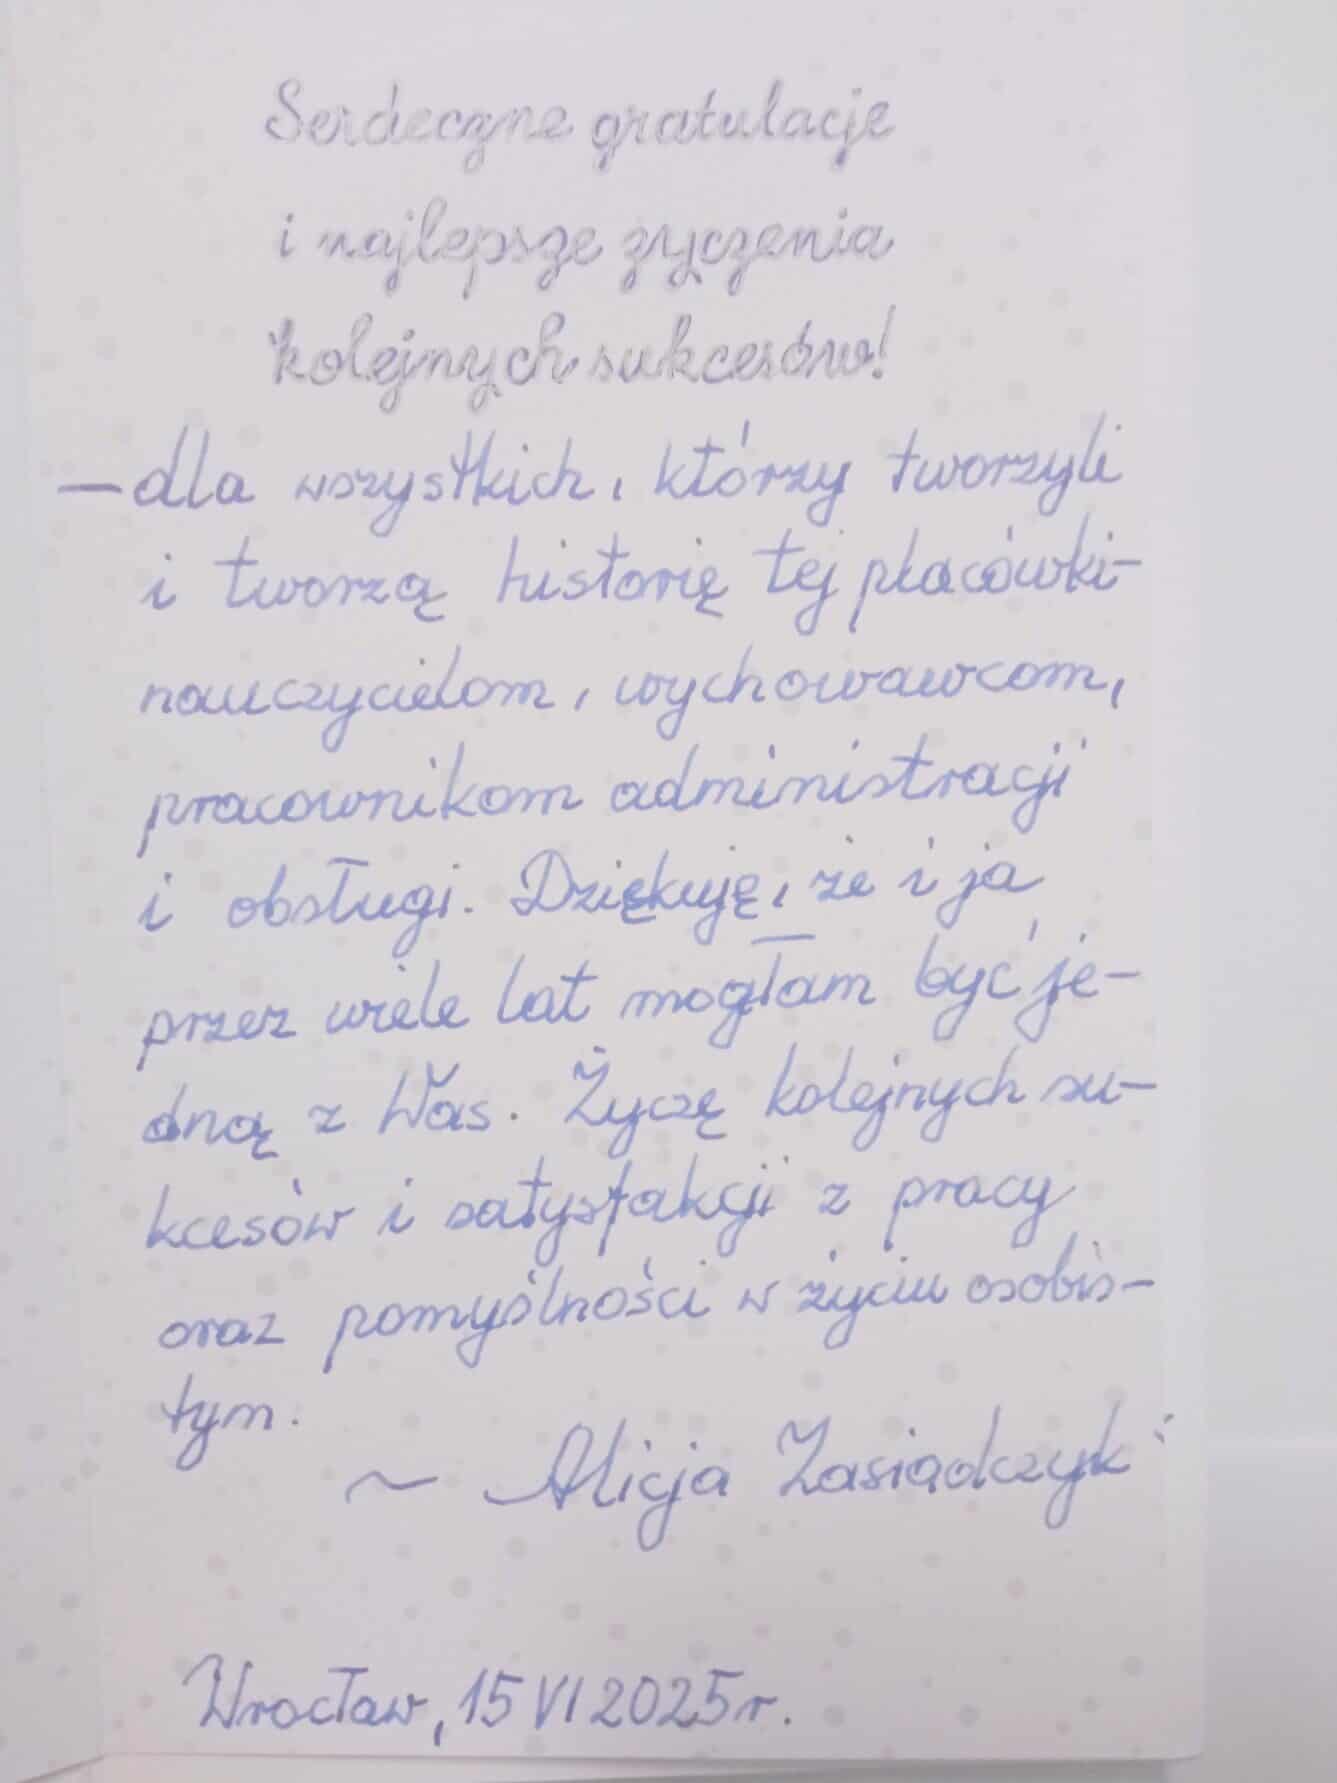 Serdeczne gratulacje
i najlepsze życzenia
kolejnych sukcesów!
— dla wszystkich, którzy tworzyli
i tworzą historię tej placówki -
nauczycielom, wychowawcom,
pracownikom administracji
i obsługi. Dziękuję, że i ja
przez wiele lat mogłam być je-
dną z Was. Życzę kolejnych su-
kcesów i satysfakcji z pracy
oraz pomyślności w życiu osobis-
tym.
~ Alicja Zasiadczyk
Wrocław, 15 VI 2025 r.